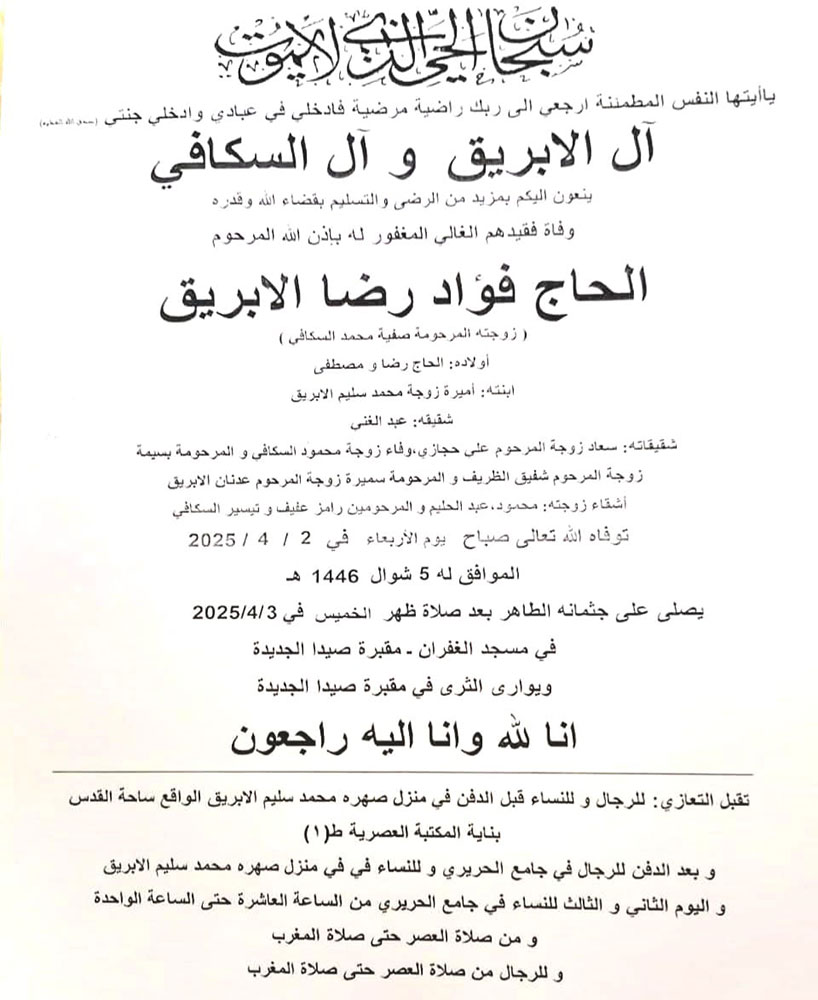 سبحان الحي الذي لا يموت
ياأيتها النفس المطمئنة ارجعي الى ربك راضية مرضية فادخلي في عبادي وادخلي جنتي (صدق الله العظيم)
آل الابريق و آل السكافي
ينعون اليكم بمزيد من الرضى والتسليم بقضاء الله وقدره
وفاة فقيدهم الغالي المغفور له بإذن الله المرحوم
الحاج فؤاد رضا الابريق
( زوجته المرحومة صفية محمد السكافي )
أولاده: الحاج رضا و مصطفى
ابنته: أميرة زوجة محمد سليم الابريق
شقيقه: عبد الغني
شقيقاته: سعاد زوجة المرحوم علي حجازي،وفاء زوجة محمود السكافي و المرحومة بسيمة
زوجة المرحوم شفيق الظريف و المرحومة سميرة زوجة المرحوم عدنان الابريق
أشقاء زوجته: محمود،عبد الحليم و المرحومين رامز عفيف و تيسير السكافي
توفاه الله تعالى صباح يوم الأربعاء في 2 / 4 / 2025
الموافق له 5 شوال 1446 هـ
يصلى على جثمانه الطاهر بعد صلاة ظهر الخميس في 2025/4/3
في مسجد الغفران - مقبرة صيدا الجديدة
ويوارى الثرى في مقبرة صيدا الجديدة
انا لله وانا اليه راجعون
تقبل التعازي: للرجال و للنساء قبل الدفن في منزل صهره محمد سليم الابريق الواقع ساحة القدس
بناية المكتبة العصرية ط(١)
و بعد الدفن للرجال في جامع الحريري و للنساء في في منزل صهره محمد سليم الابريق
و اليوم الثاني و الثالث للنساء في جامع الحريري من الساعة العاشرة حتى الساعة الواحدة
و من صلاة العصر حتى صلاة المغرب
و للرجال من صلاة العصر حتى صلاة المغرب